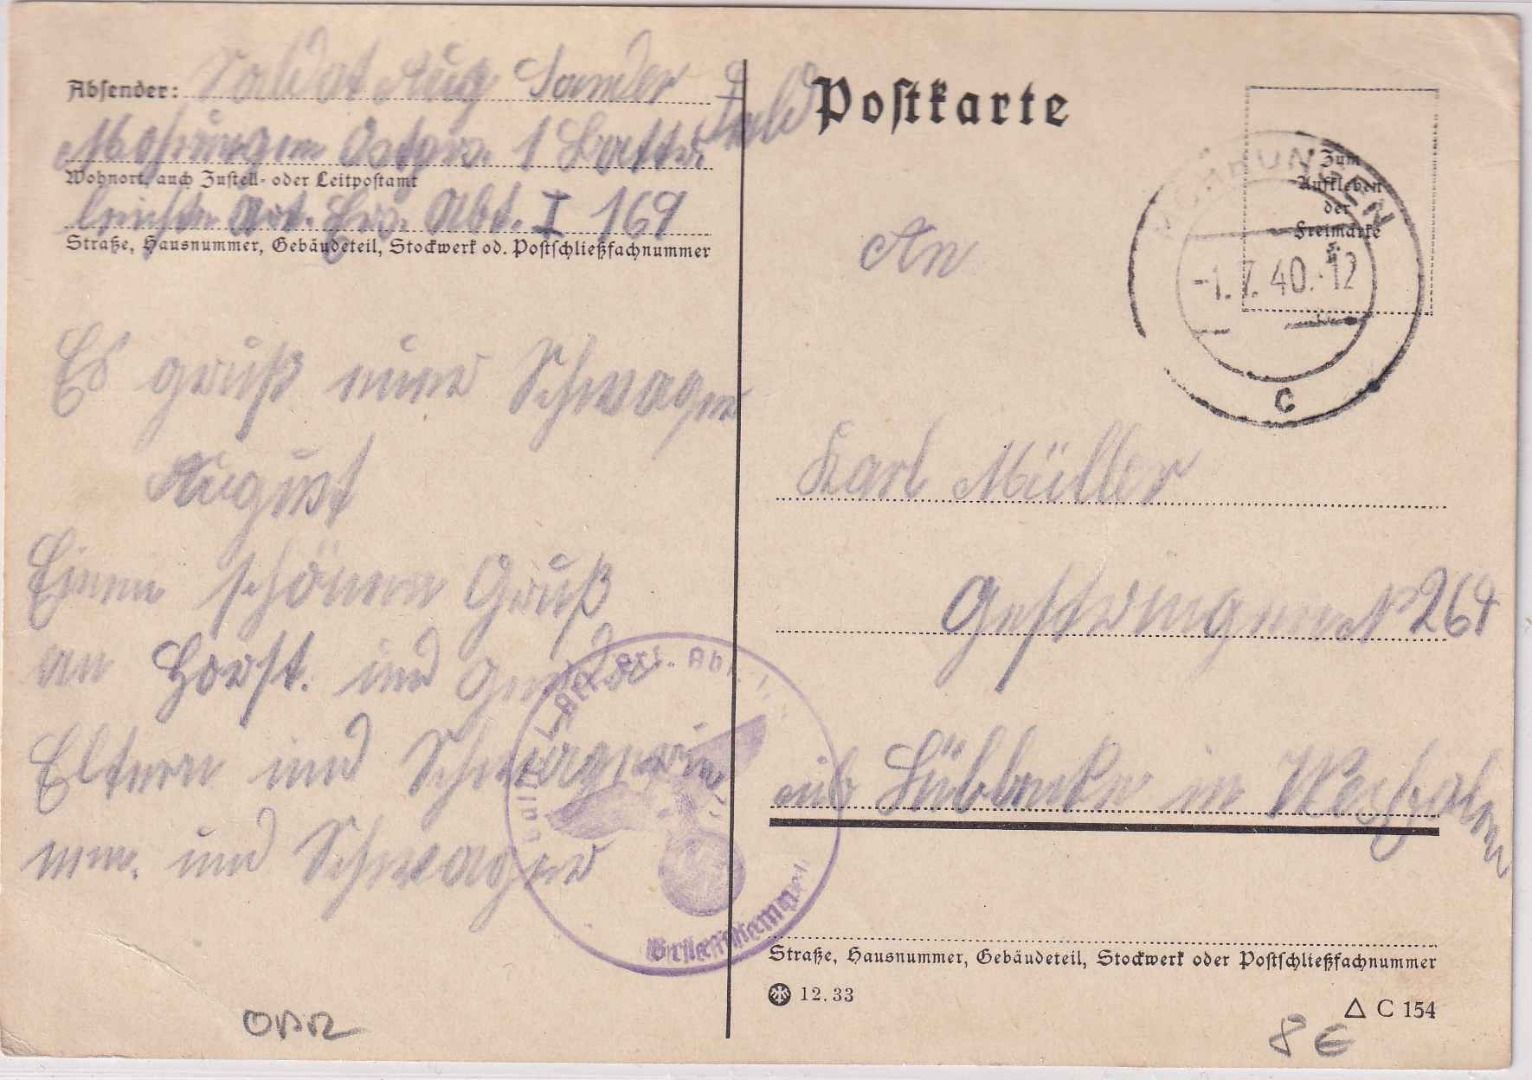 Absender: Soldat Aug Sander
Feld
Mohrungen Ostpr. 1 Battr.
Wohnort, auch Zustell- oder Leitpostamt
leichte Art. Ers. Abt. I 169
Straße, Hausnummer, Gebäudeteil, Stockwerk od. Postschließfachnummer
Es grüßt euer Schwager
August
Einen schönen Gruß
an Horst. und
Eltern und Schwägerin
und Schwager
Postkarte
Zum
Aufkleben
der
Freimarke
MOHRUNGEN
-1.7.40.-12
c
An
Karl Müller
Gestringen Nr 264
Lübbecke in Wesfalen
Art. Ers. Abt. I
Briefstempel
Straße, Hausnummer, Gebäudeteil, Stockwerk oder Postschließfachnummer
12.33
△ C 154
OBR
8 €